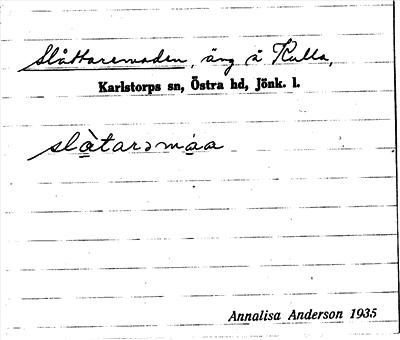 Slåttaremaden, äng å Kulla,
Karlstorps sn, Östra hd, Jönk. l.
slàtarəmáa
Annalisa Anderson 1935